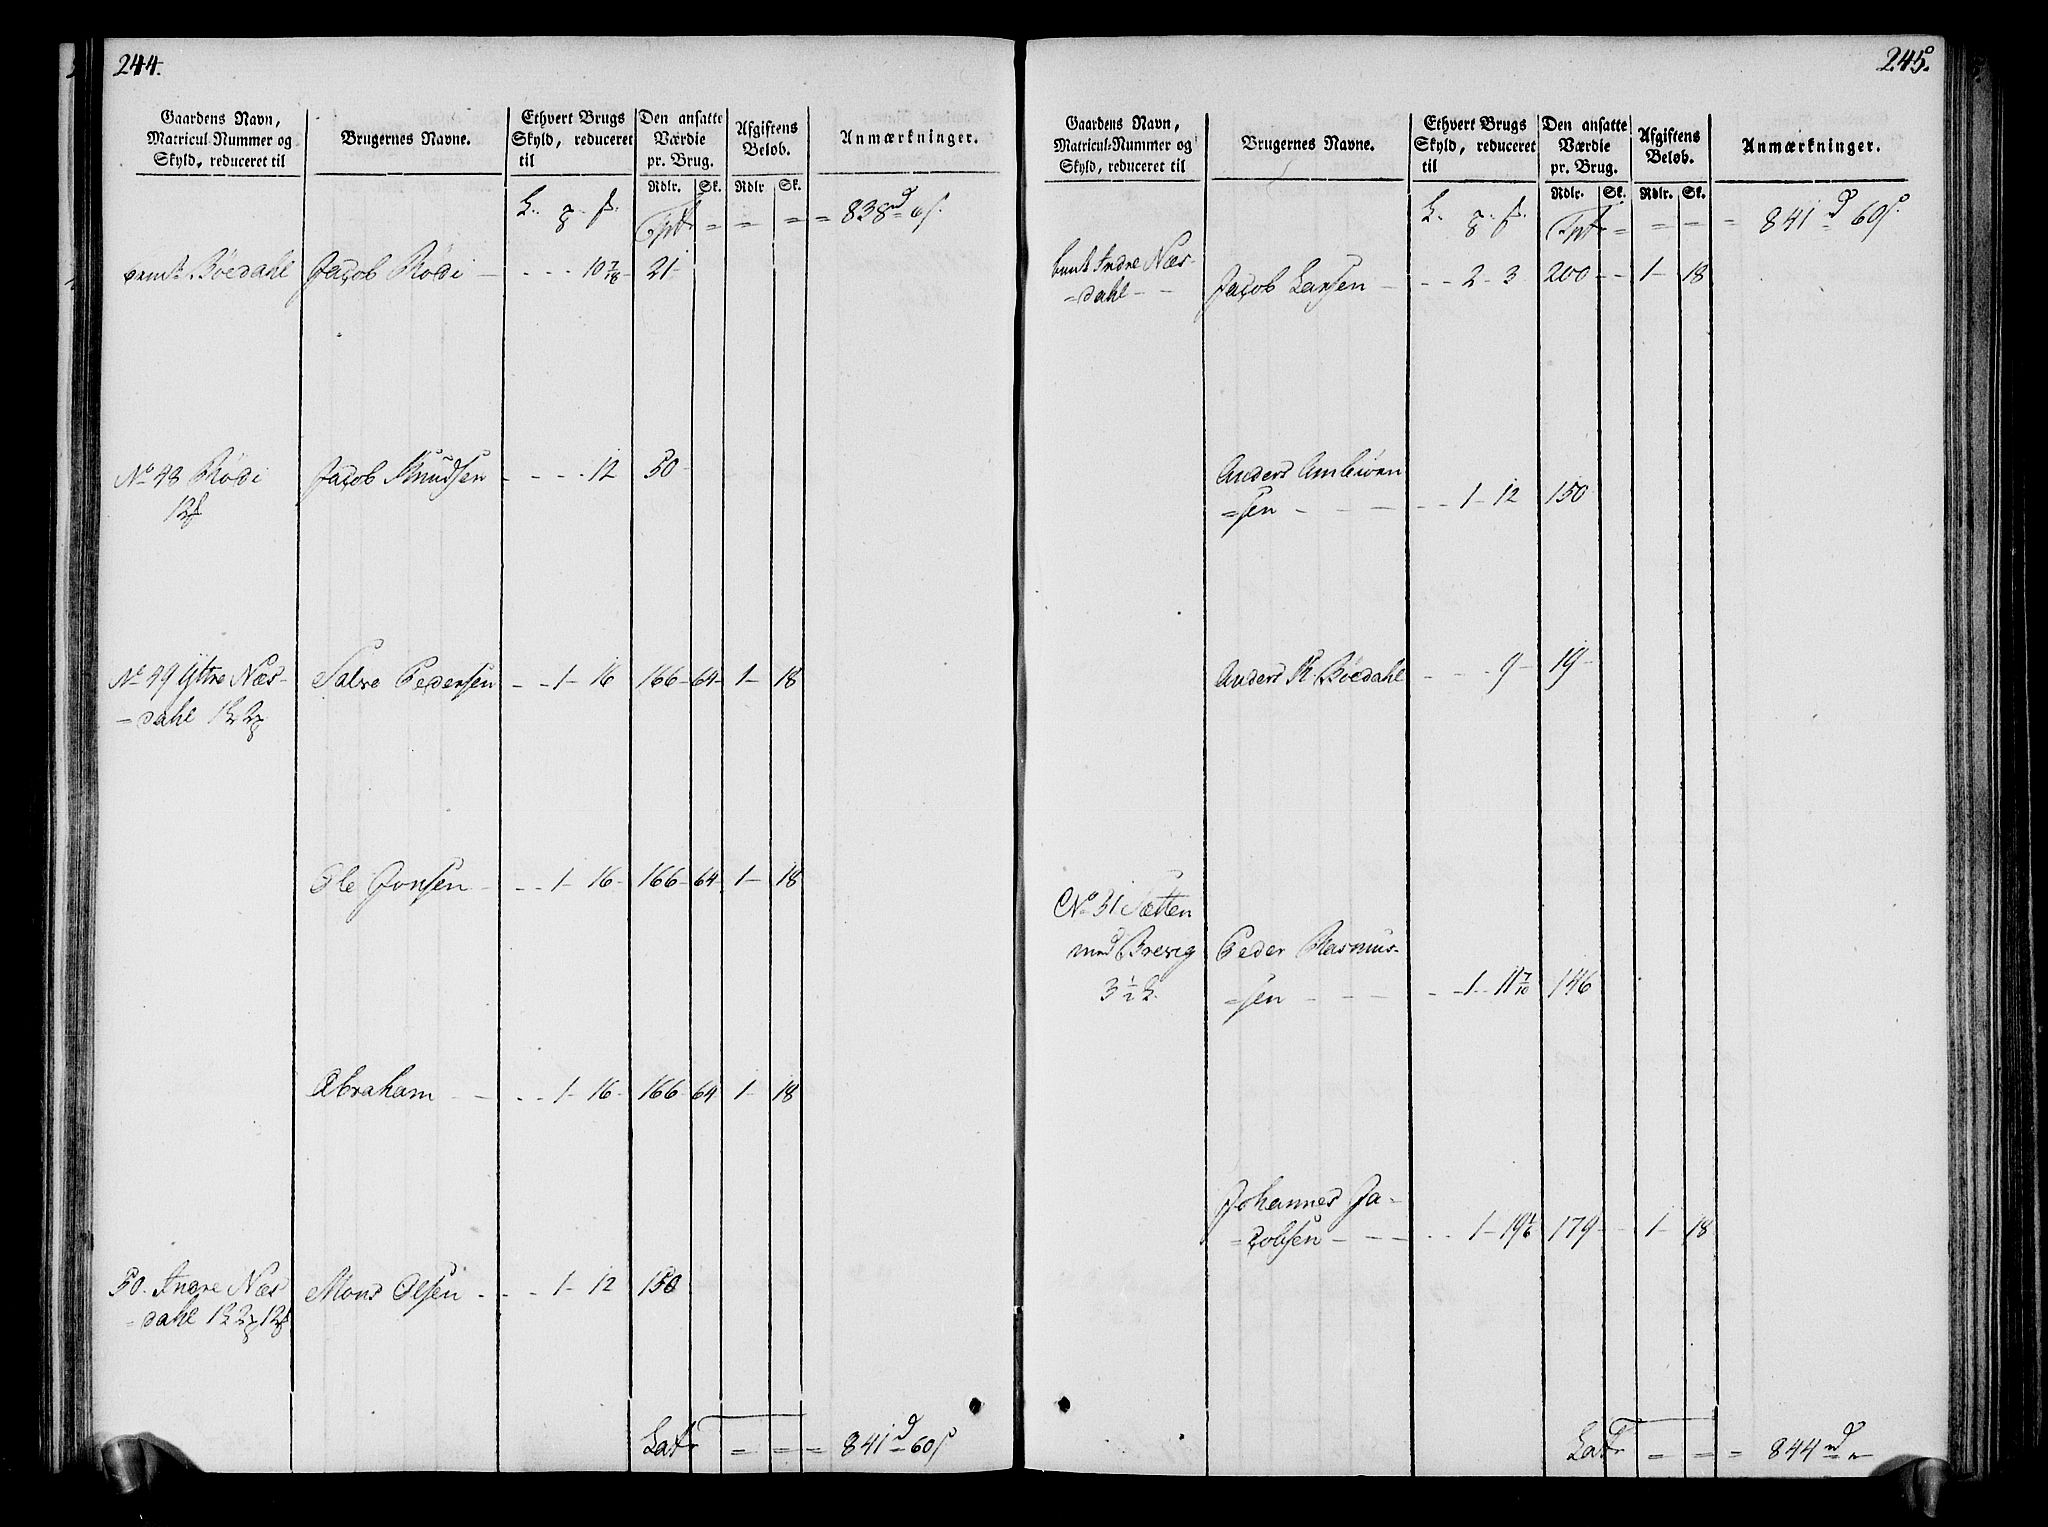 244.
Gaardens Navn, Matricul-Nummer og Skyld, reduceret til
Brugernes Navne.
Ethvert Brugs Skyld, reduceret til
Den ansatte Værdie pr. Brug.
Afgiftens Beløb.
Anmærkninger.
Rdlr. Sk. Rdlr Sk.
Tpt = = = = 838 d 6 s.
Bøedahl Jacob Rødi - - - 10 7/8 - 21 -
No 48 Rødi Jacob Knudsen - - - - 12 50 -
12 s
No 49 Yttre Næs- Salve Pedersen - - 1 - 16 166 - 64 - 1 - 18
= dahl 1 2
Ole Jonsen - - - 1 - 16 - 166 - 64 - 1 - 18
Abraham - - - - 1 - 16 - 166 - 64 1 - 18
50. Indre Næs Mons Olsen - - - 1 - 12 150
= dahl 1 2 12
Lat = = = = 841 d = 60 s
245.
Gaardens Navn, Matricul-Nummer og Skyld, reduceret til
Brugernes Navne.
Ethvert Brugs Skyld, reduceret til
Den ansatte Værdie pr. Brug.
Afgiftens Beløb.
Anmærkninger.
Rdlr. Sk. Rdlr. Sk.
Tpt = = = = 841 d 60 s.
Indre Næs-
= dahl - - Jacob Larsen - - - 2 - 3 200 - - 1 - 18
Anders Ambiørn
= sen - - - - - 1 - 12 150
Anders K. Bøedahl - - - 9 - 19 -
No 51 Sætten
med Brevig Peder Rasmus-
3 1/2 = sen - - - - - 1 - 11 7/10 146
Johannes Ja-
= cobsen - - - - - 1 - 19 1/6 179 - - 1 - 18
Lat = = = 844 d =